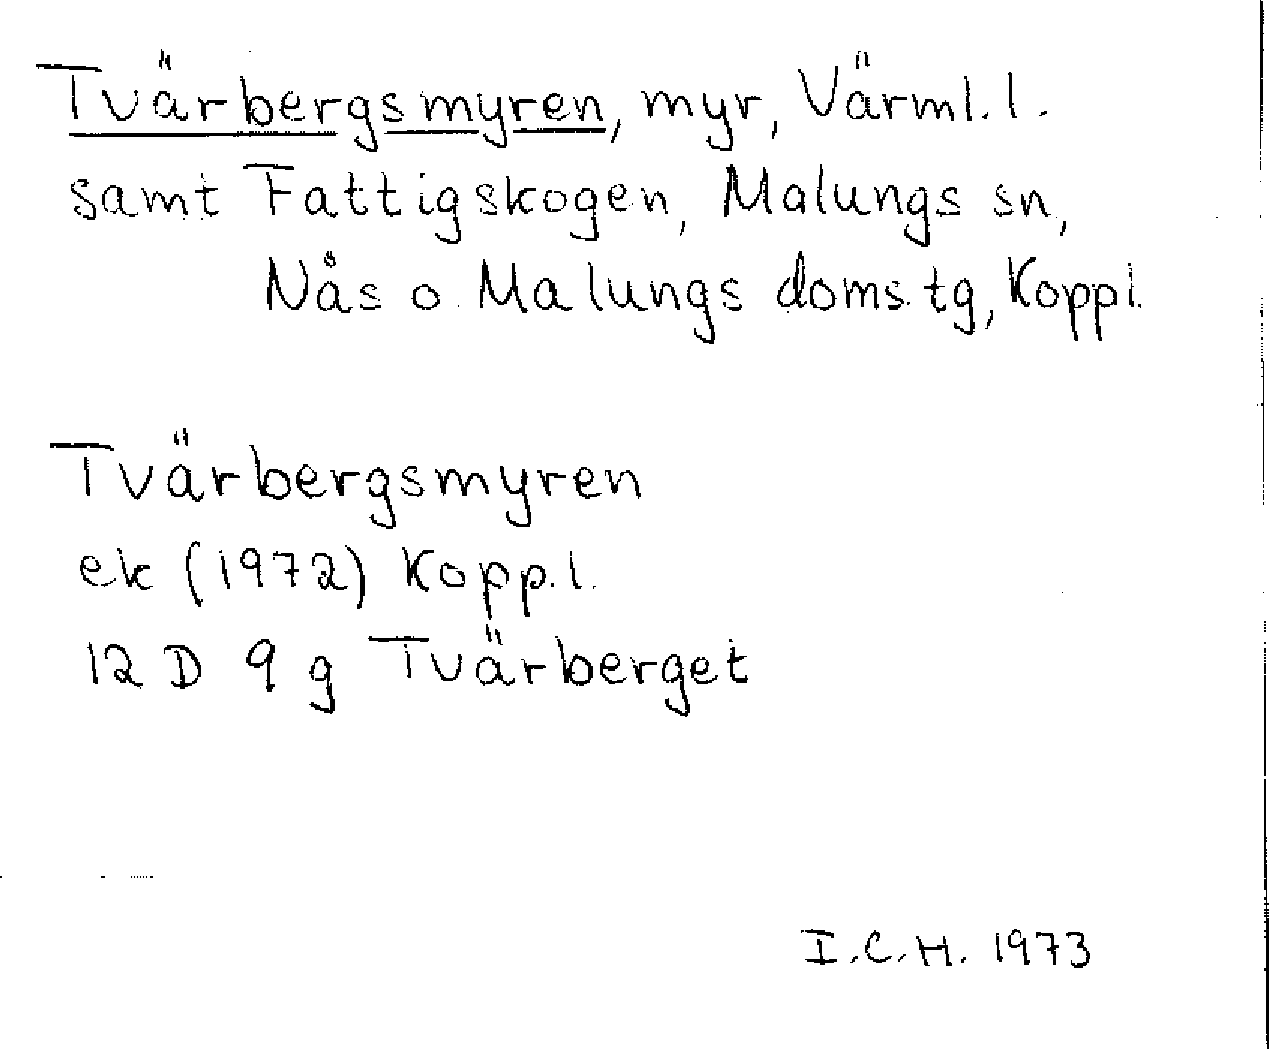 Tvärbergsmyren, myr, Värml. l.
samt Fattigskogen, Malungs sn,
Nås o. Malungs doms.tg, Koppl.
Tvärbergsmyren
ek (1972) Kopp.l.
12 D 9 g Tvärberget
I.C.H. 1973